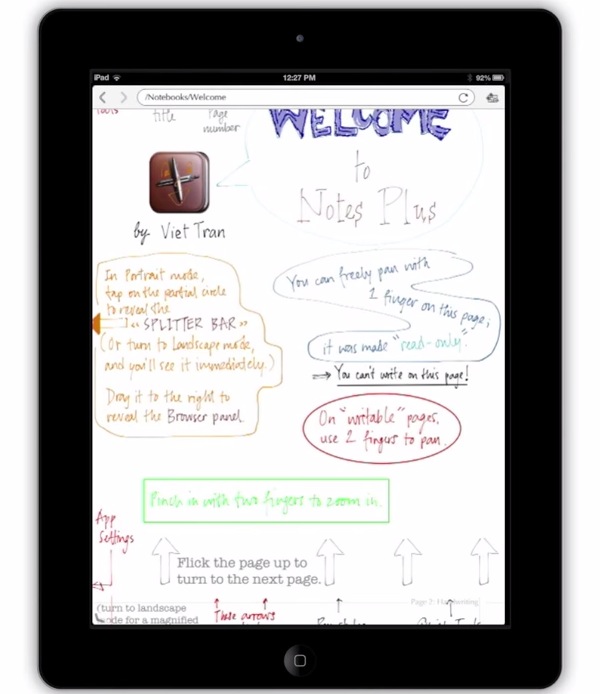 iPad 12:27 PM 92%
/Notebooks/Welcome
title Page
number
WELCOME
to
Notes Plus
by Viet Tran
In Portrait mode,
tap on the partial circle
to reveal the
"SPLITTER BAR"
(Or turn to Landscape mode,
and you'll see it immediately.)
Drag it to the right to
reveal the Browser panel.
You can freely pan with
1 finger on this page,
it was made "read-only".
⇒ You can't write on this page!
On "writable" pages,
use 2 fingers to pan.
Pinch in with two fingers to zoom in.
App
Settings
Flick the page up to
turn to the next page.
Page 2: Handwriting
(turn to landscape
mode for a magnified
These arrows